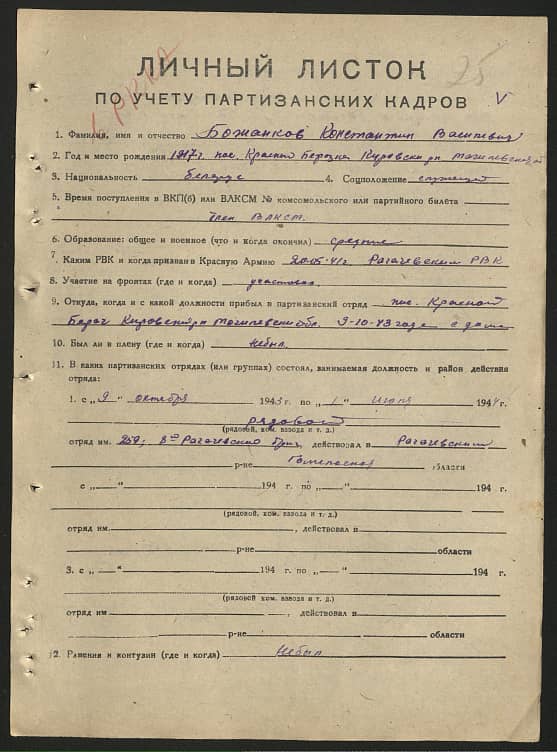 25
ЛИЧНЫЙ ЛИСТОК
ПО УЧЕТУ ПАРТИЗАНСКИХ КАДРОВ V
1. Фамилия, имя и отчество Божанков Константин Васильевич
2. Год и место рождения 1917 г. пос. Красный Кировски рн Могилевской
3. Национальность белорус 4. Соцположение служащий
5. Время поступления в ВКП(б) или ВЛКСМ № комсомольского или партийного билёта
Член ВЛКСМ.
6. Образование: общее и военное (что и когда окончил) среднее
7. Каким РВК и когда призван в Красную Армию 20-05-41г. Рагачевским РВК
8. Участие на фронтах (где и когда) участвовал
9. Откуда, когда и с какой должности прибыл в партизанский отряд пос. Красной
Кировский рн Могилевской обл. 9-10-43 года с дома
10. Был ли в плену (где и когда) небыл.
11. В каких партизанских отрядах (или группах) состоял, занимаемая должность и район действия
отряда:
1. с „ 9 " октября 1943 г. по „ 1 " июля 1944 г.
рядовой
(рядовой, ком. взвода и т. д.)
отряд им. 259; 8ой Рагачевской бриг, действовал в Рагачевским
р-не Гомельской области
с „ " 194 г. по „ " 194 г.
(рядовой, ком. взвода и т. д.)
отряд им. , действовал в
р-не области
3. с „ " 194 г. по „ " 194 г.
(рядовой, ком. взвода и т. д.)
отряд им , действовал в
р-не области
12. Ранения и контузии (где и когда) Небыл